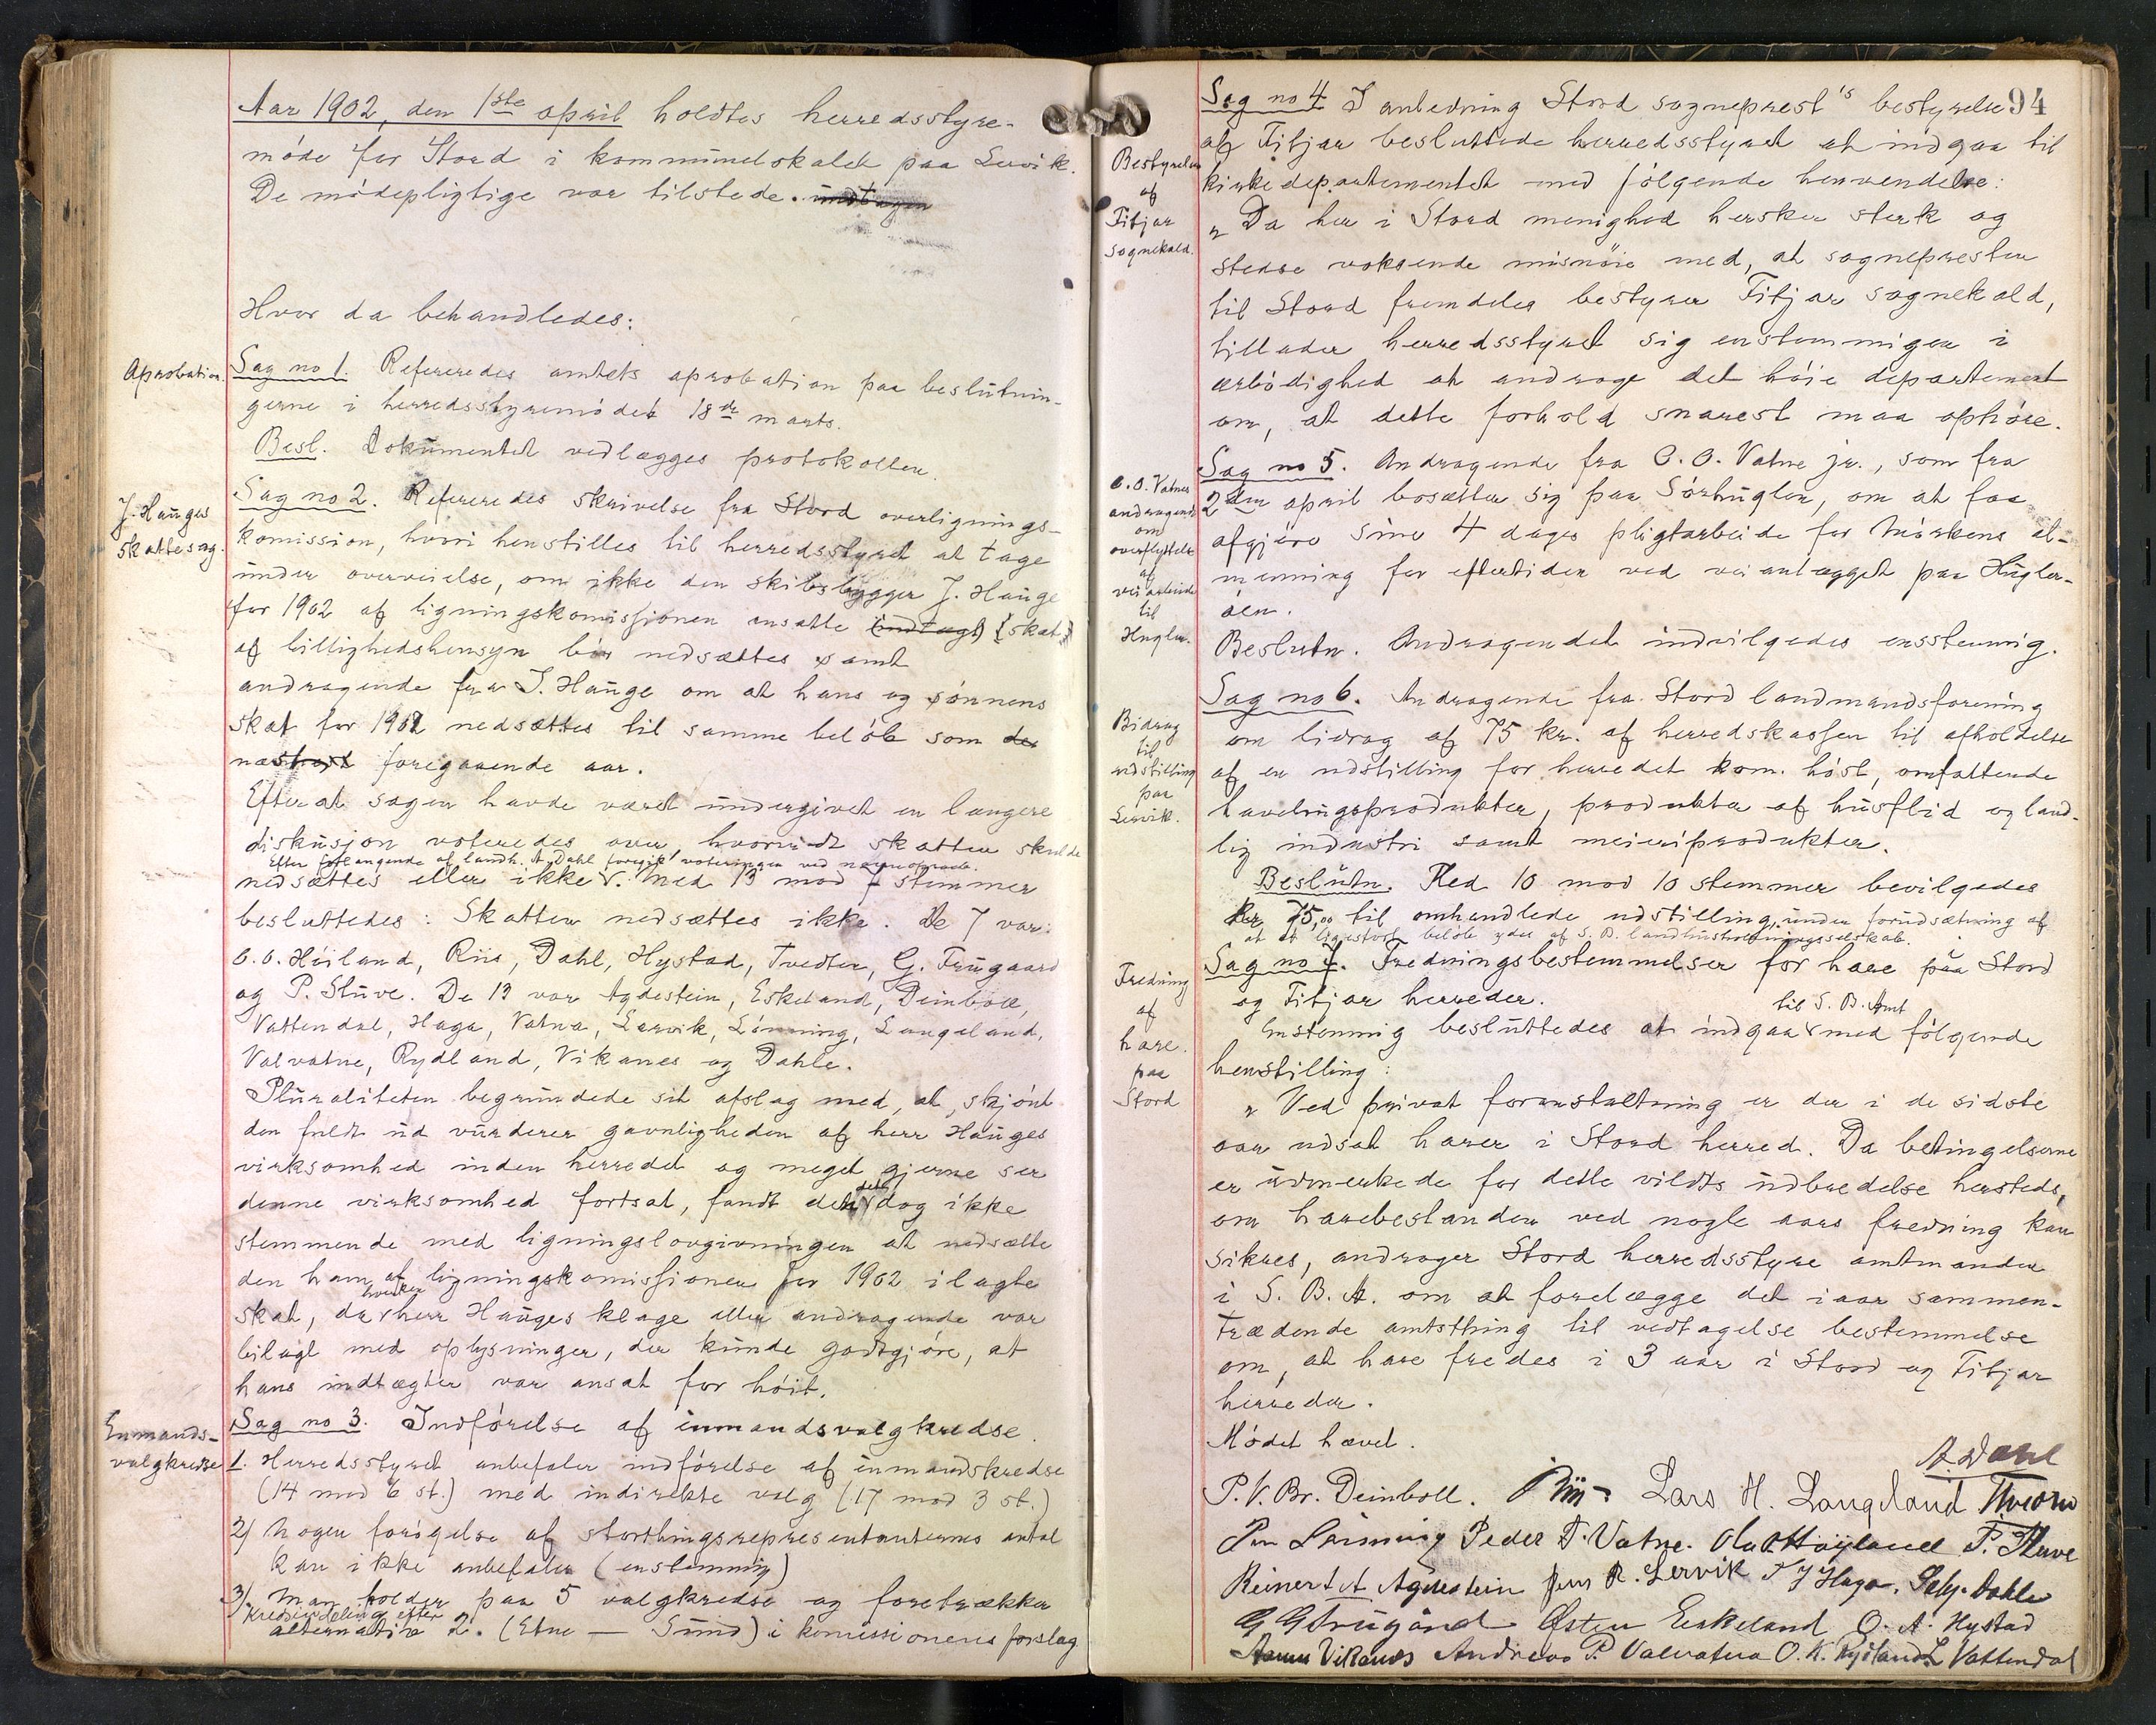 Aar 1902, den 1ste april holdtes herredsstyre-
møde for Stord i kommunelokalet paa Lervik.
De mødepligtige var tilstede. undtagen
Hvor da behandledes:
Aprobation.
Sag no 1. Refereredes amtets aprobation paa beslutnin-
gerne i herredsstyremødet 18de marts.
Besl. Dokumentet vedlægges protokollen.
J. Hauges
skattesag.
Sag no 2. Refereredes skrivelse fra Stord overlignings-
komission, hvori henstilles til herredsstyret at tage
under overveielse, om ikke den skibsbygger J. Hauge
for 1902 af ligningskomissionen ansatte (indtægt) {skat}
af billighedshensyn bør nedsættes samt
andragende fra J. Hauge om at hans og sønnens
skat for 1902 nedsættes til samme beløb som det
næstforr foregaaende aar.
Efter at sagen havde været undergivet en længere
diskusjon voteredes over, hvorvidt skatten skulde
Efter forlangende af landh. A. Dahl foregik voteringen ved navneopraab.
nedsættes eller ikke. Med 13 mod 7 stemmer
besluttedes: Skatten nedsættes ikke. De 7 var:
O. O. Høiland, Riis, Dahl, Hystad, Tvedten, G. Frugaard
og P. Stuve. De 13 var Agdestein, Eskeland, Deinboll,
Vattendal, Haga, Vatna, Lervik, Lønning, Langeland,
Valvatne, Rydland, Vikanes og Dahle.
Pluraliteten begrundede sit afslag med, at, skjønt
den fuldt ud vurderer gavnligheden af herr Hauges
virksomhed inden herredet og meget gjerne ser
denne virksomhed fortsat, fandt den det dog ikke
stemmende med ligningslovgivningen at nedsætte
den ham af ligningskomissionen for 1902 ilagte
skat, da hverken herr Hauges klage eller andragende var
bilagt med oplysninger, der kunde godtgjøre, at
hans indtægter var ansat for høit.
Enmands-
valgkredse
Sag no 3. Indførelse af enmandsvalgkredse.
1. Herredsstyret anbefaler indførelse af enmandskredse
(14 mod 6 st.) med indirekte valg (17 mod 3 st.)
2) Nogen forøgelse af storthingsrepresentanternes antal
kan ikke anbefales (enstemmig)
3) Man holder paa 5 valgkredse og foretrækker
kredsinddeling efter
alternativ 2. (Etne — Sund) i komissionens forslag
94
Bestyrelsen
af
Fitjar
sognekald.
Sag no 4. I anledning Stord sogneprest's bestyrelse
af Fitjar besluttede herredsstyret at indgaa til
kirkedepartementet med følgende henvendelse:
„Da her i Stord menighed hersker sterk og
stedse voksende misnøie med, at sognepresten
til Stord fremdeles bestyrer Fitjar sognekald,
tillader herredsstyret sig enstemmigen i
ærbødighed at andrage det høie departement
om, at dette forhold snarest maa ophøre.
O. O. Vatnes
andragende
om
overflyttelse
af
veiarbeide
til
Huglen.
Sag no 5. Andragende fra O. O. Vatne jr., som fra
2den april bosætter sig paa Sørhuglen, om at faa
afgjøre sine 4 dages pligtarbeide for Mørkens al-
menning for eftertiden ved veianlægget paa Hugler-
øen.
Beslutn. Andragendet indvilgedes enstemmig.
Bidrag
til
udstilling
paa
Lervik.
Sag no 6. Andragende fra Stord landmandsforening
om bidrag af 75 kr. af herredskassen til afholdelse
af en udstilling for herredet kom. høst, omfattende
havebrugsprodukter, produkter af husflid og land-
lig industri samt meieriprodukter.
Beslutn. Med 10 mod 10 stemmer bevilgedes
kr 75,00 til omhandlede udstilling, under forudsætning af
at et ligestort beløb ydes af S. B. landhusholdningsselskab.
Fredning
af
hare
paa
Stord
Sag no 7. Fredningsbestemmelser for hare paa Stord
og Fitjar herreder.
Enstemmig besluttedes at indgaa til S. B. Amt med følgende
henstilling:
„Ved privat foranstaltning er der i de sidste
aar udsat harer i Stord herred. Da betingelserne
er udmerkede for dette vildts udbredelse hersteds,
om harebestanden ved nogle aars fredning kan
sikres, andrager Stord herredsstyre amtmanden
i S. B. A. om at forelægge det iaar sammen-
trædende amtsthing til vedtagelse bestemmelse
om, at hare fredes i 3 aar i Stord og Fitjar
herreder.
Mødet hævet.
A Dahl
P. V. Br. Deinboll. Riis Lars H. Langeland
Peder T. Vatne. Ola O Høyland P. Stuve
Reinert A. Agdestein Jens R. Lervik Dahle
Østen Eskeland O. A. Hystad
Vikanes Andreas P. Valvatna O. K. Rydland L Vattendal